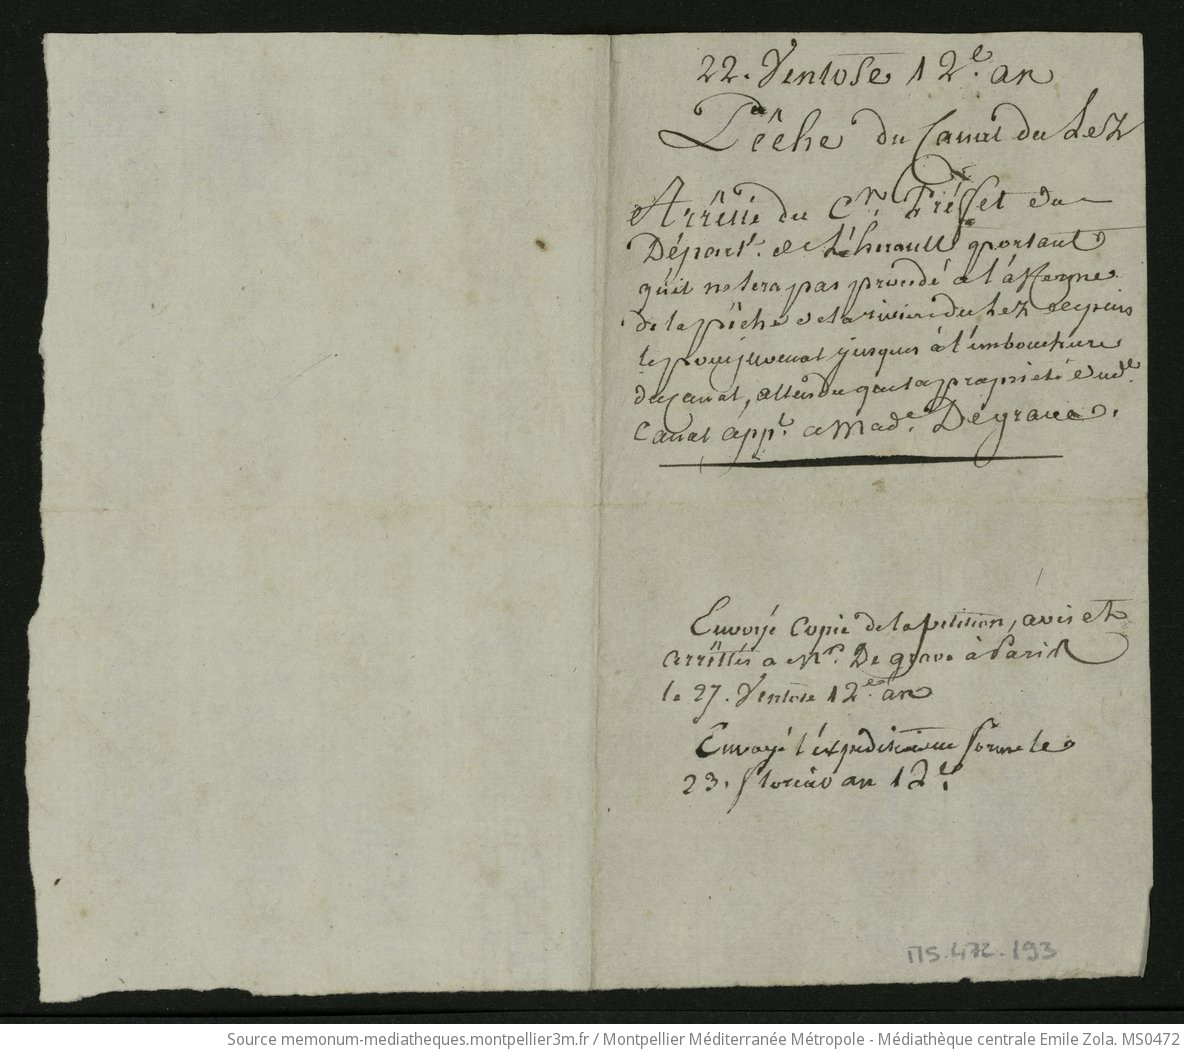 22. Ventose 12e. an
Pêche du Canal du Lez
Arrêtté du Cn. Préfet du
Départt. de L'hérault portant
qu'il ne sera pas procedé a l'afferme
de la pêche de la riviere du Lez depuis
le pont juvenal jusques à l'embouchure
du Canal, attendu que la propriété dudt.
Canal appt. a Made. Dégrave.
Envoyé Copie de la petition, avis et
arrêttés a Mr. De grave à Paris
le 27. Ventose 12e. an
Envoyé l'éxpedition en forme le
23. floréal an 12e.
MS.472-193
Source memonum-mediatheques.montpellier3m.fr / Montpellier Méditerranée Métropole - Médiathèque centrale Emile Zola. MS0472